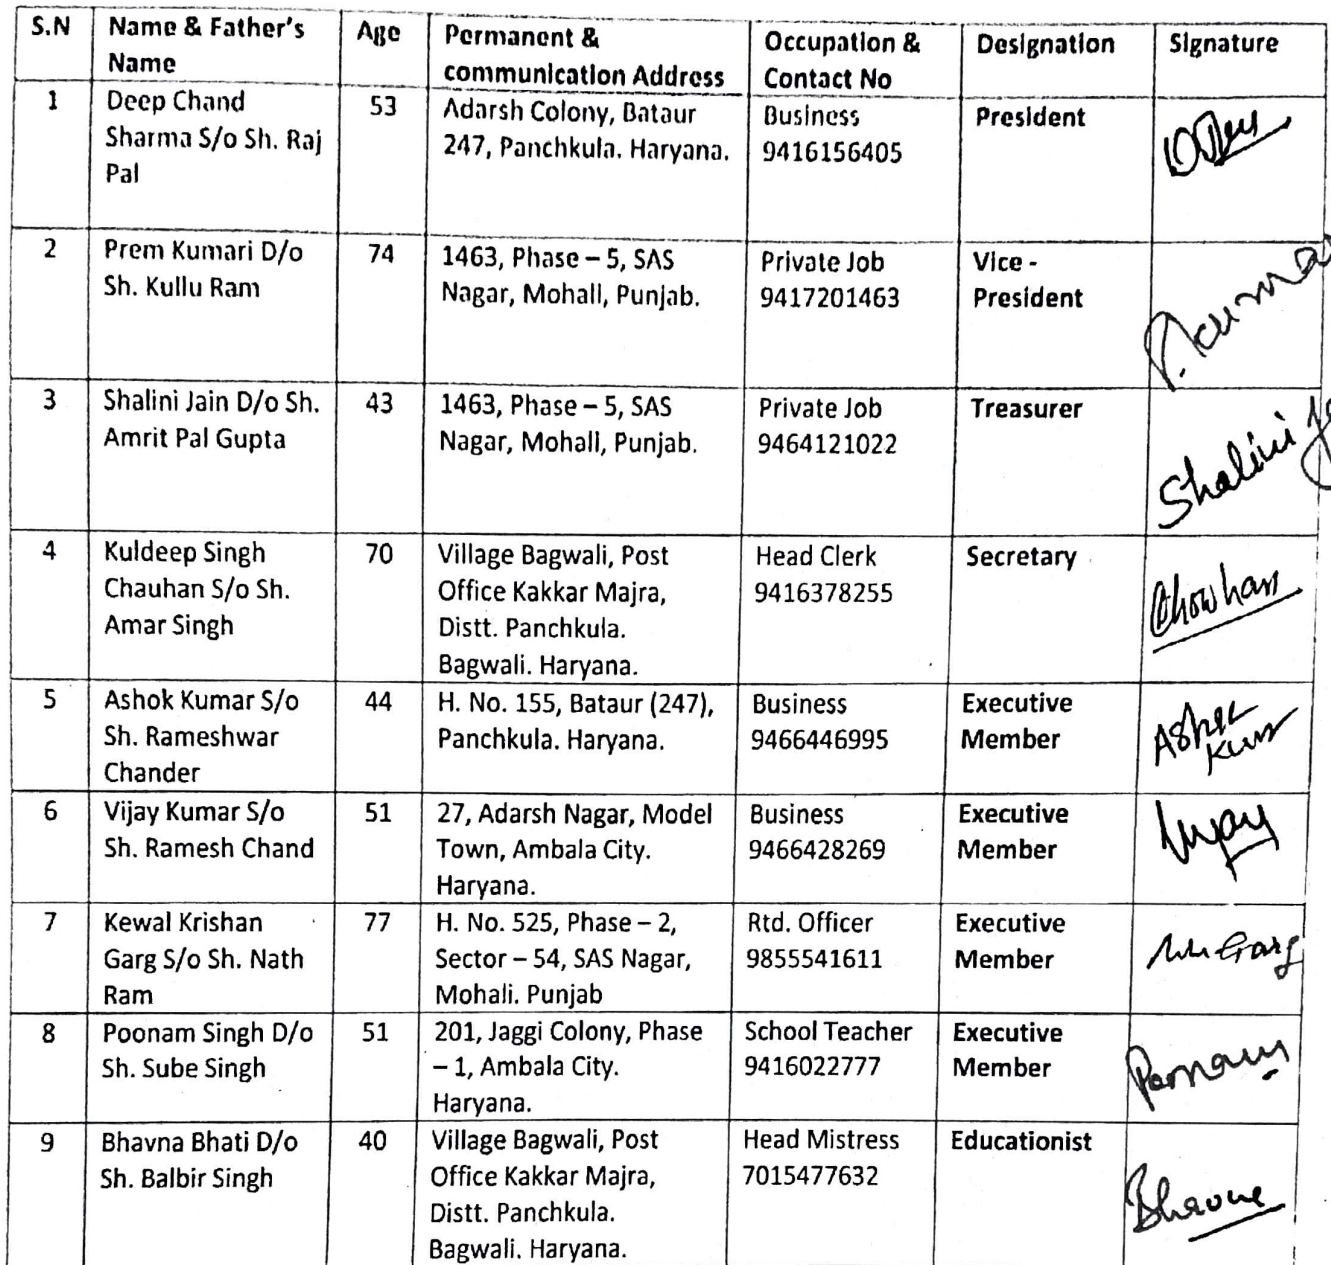 S.N Name & Father's Name Age Permanent & communication Address Occupation & Contact No Designation Signature
1 Deep Chand Sharma S/o Sh. Raj Pal 53 Adarsh Colony, Bataur 247, Panchkula. Haryana. Business 9416156405 President
2 Prem Kumari D/o Sh. Kullu Ram 74 1463, Phase – 5, SAS Nagar, Mohali, Punjab. Private Job 9417201463 Vice - President
3 Shalini Jain D/o Sh. Amrit Pal Gupta 43 1463, Phase – 5, SAS Nagar, Mohali, Punjab. Private Job 9464121022 Treasurer Shalini
4 Kuldeep Singh Chauhan S/o Sh. Amar Singh 70 Village Bagwali, Post Office Kakkar Majra, Distt. Panchkula. Bagwali. Haryana. Head Clerk 9416378255 Secretary Chowhan
5 Ashok Kumar S/o Sh. Rameshwar Chander 44 H. No. 155, Bataur (247), Panchkula. Haryana. Business 9466446995 Executive Member
6 Vijay Kumar S/o Sh. Ramesh Chand 51 27, Adarsh Nagar, Model Town, Ambala City. Haryana. Business 9466428269 Executive Member
7 Kewal Krishan Garg S/o Sh. Nath Ram 77 H. No. 525, Phase – 2, Sector – 54, SAS Nagar, Mohali. Punjab Rtd. Officer 9855541611 Executive Member Garg
8 Poonam Singh D/o Sh. Sube Singh 51 201, Jaggi Colony, Phase – 1, Ambala City. Haryana. School Teacher 9416022777 Executive Member
9 Bhavna Bhati D/o Sh. Balbir Singh 40 Village Bagwali, Post Office Kakkar Majra, Distt. Panchkula. Bagwali. Haryana. Head Mistress 7015477632 Educationist